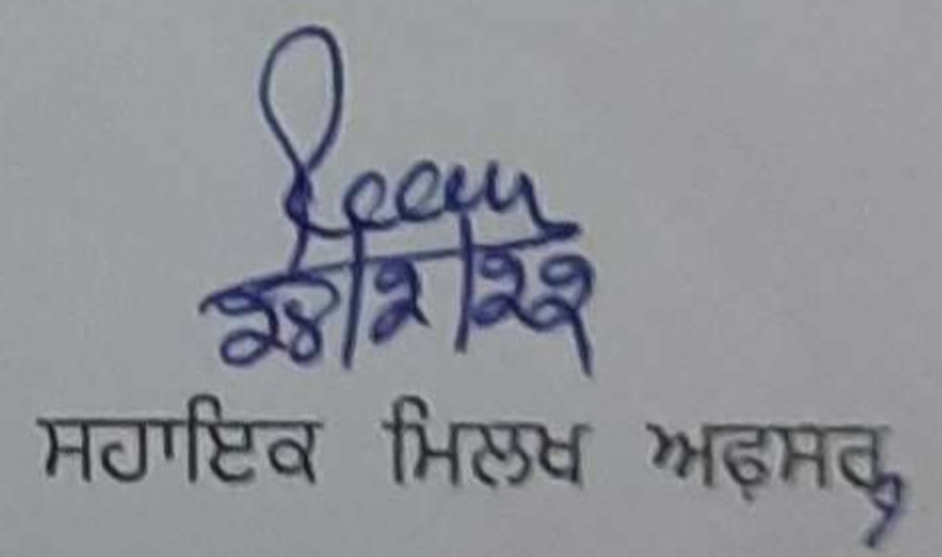 ੨੪/੨/੨੨
ਸਹਾਇਕ ਮਿਲਖ ਅਫ਼ਸਰ,